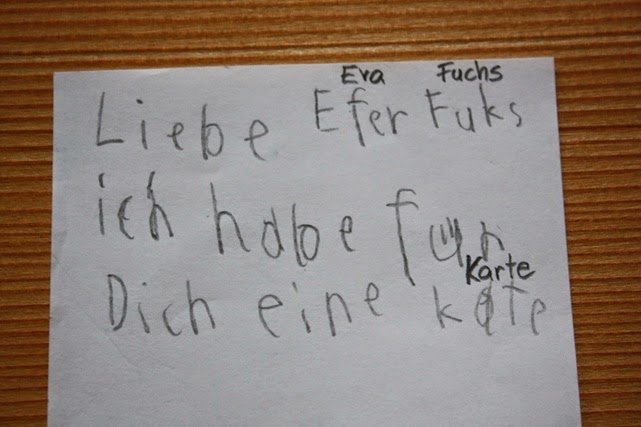 Eva Fuchs
Liebe Efer Fuks
ich habe für
Karte
Dich eine kate